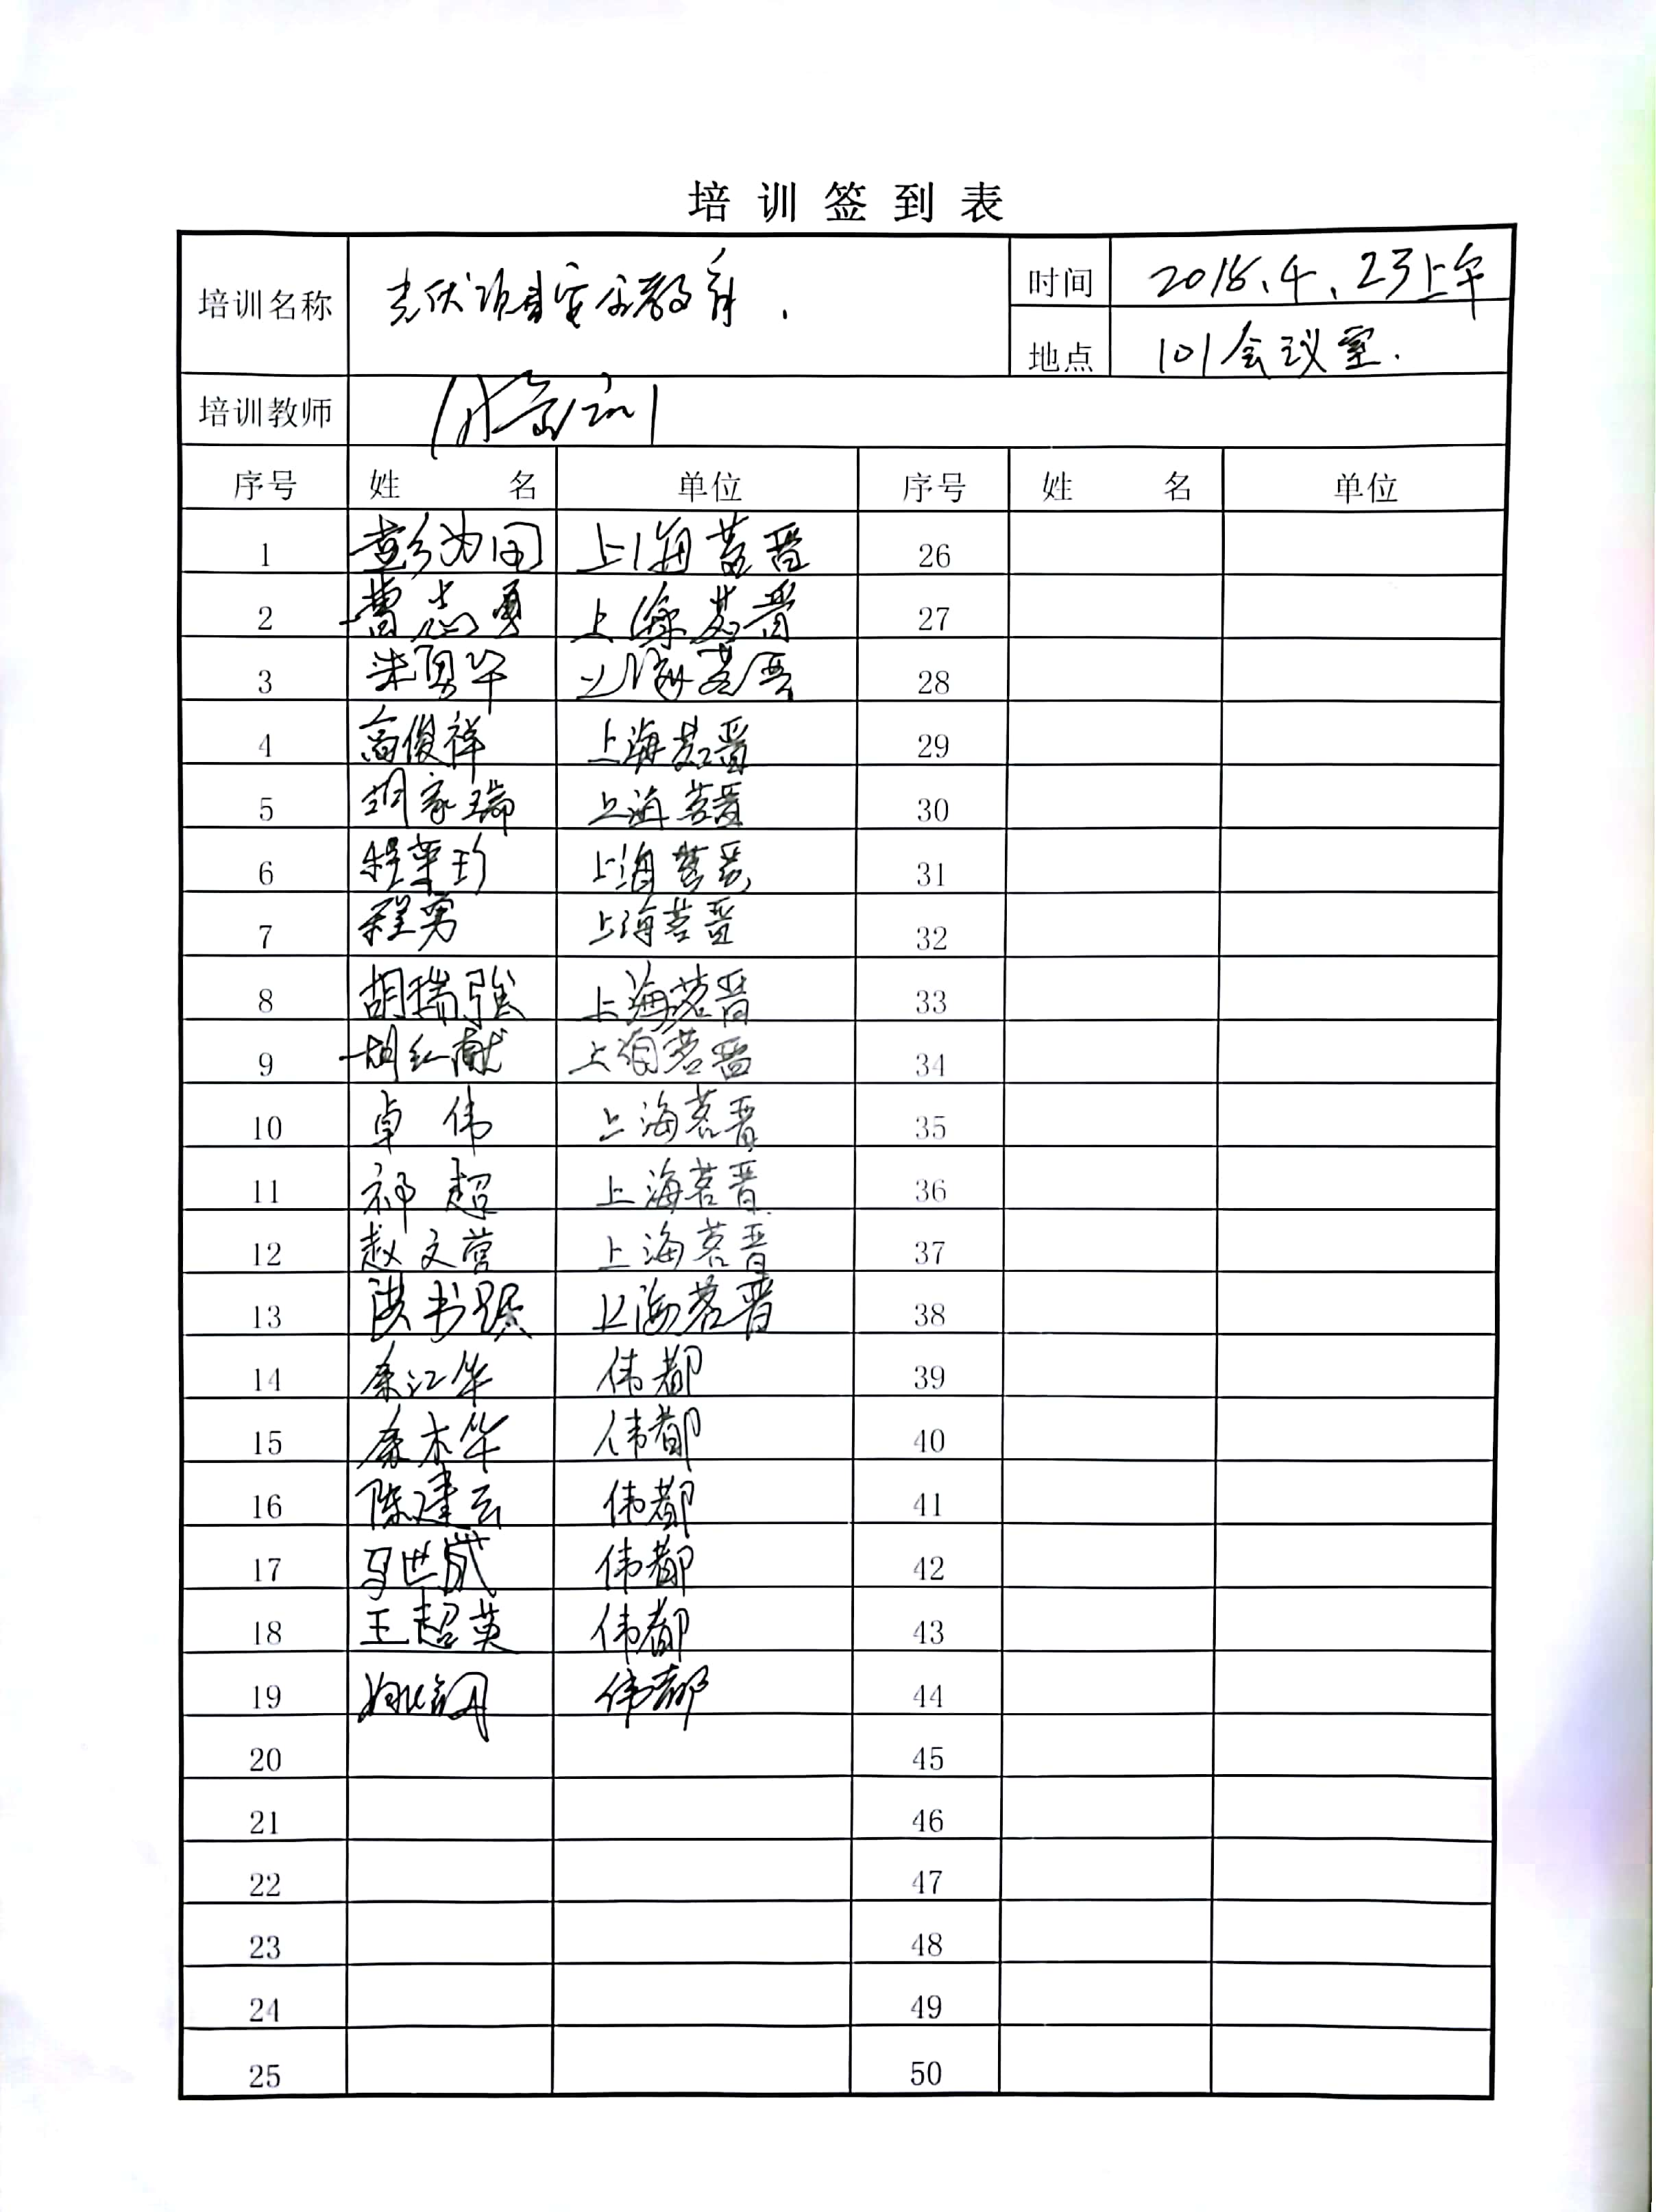 培训签到表
培训名称 光伏项目安全教育. 时间 2018.4.23上午
地点 101会议室.
培训教师
序号 姓名 单位 序号 姓名 单位
1 彭为田 上海茗晋 26
2 曹志勇 上海茗晋 27
3 朱勇华 上海茗晋 28
4 高俊祥 上海茗晋 29
5 胡家瑞 上海茗晋 30
6 程荣珍 上海茗晋 31
7 程勇 上海茗晋 32
8 胡瑞强 上海茗晋 33
9 胡红献 上海茗晋 34
10 卓伟 上海茗晋 35
11 祁超 上海茗晋 36
12 赵文营 上海茗晋 37
13 洪书 上海茗晋 38
14 江华 伟都 39
15 木华 伟都 40
16 陈建云 伟都 41
17 马世成 伟都 42
18 王超英 伟都 43
19 伟都 44
20 45
21 46
22 47
23 48
24 49
25 50